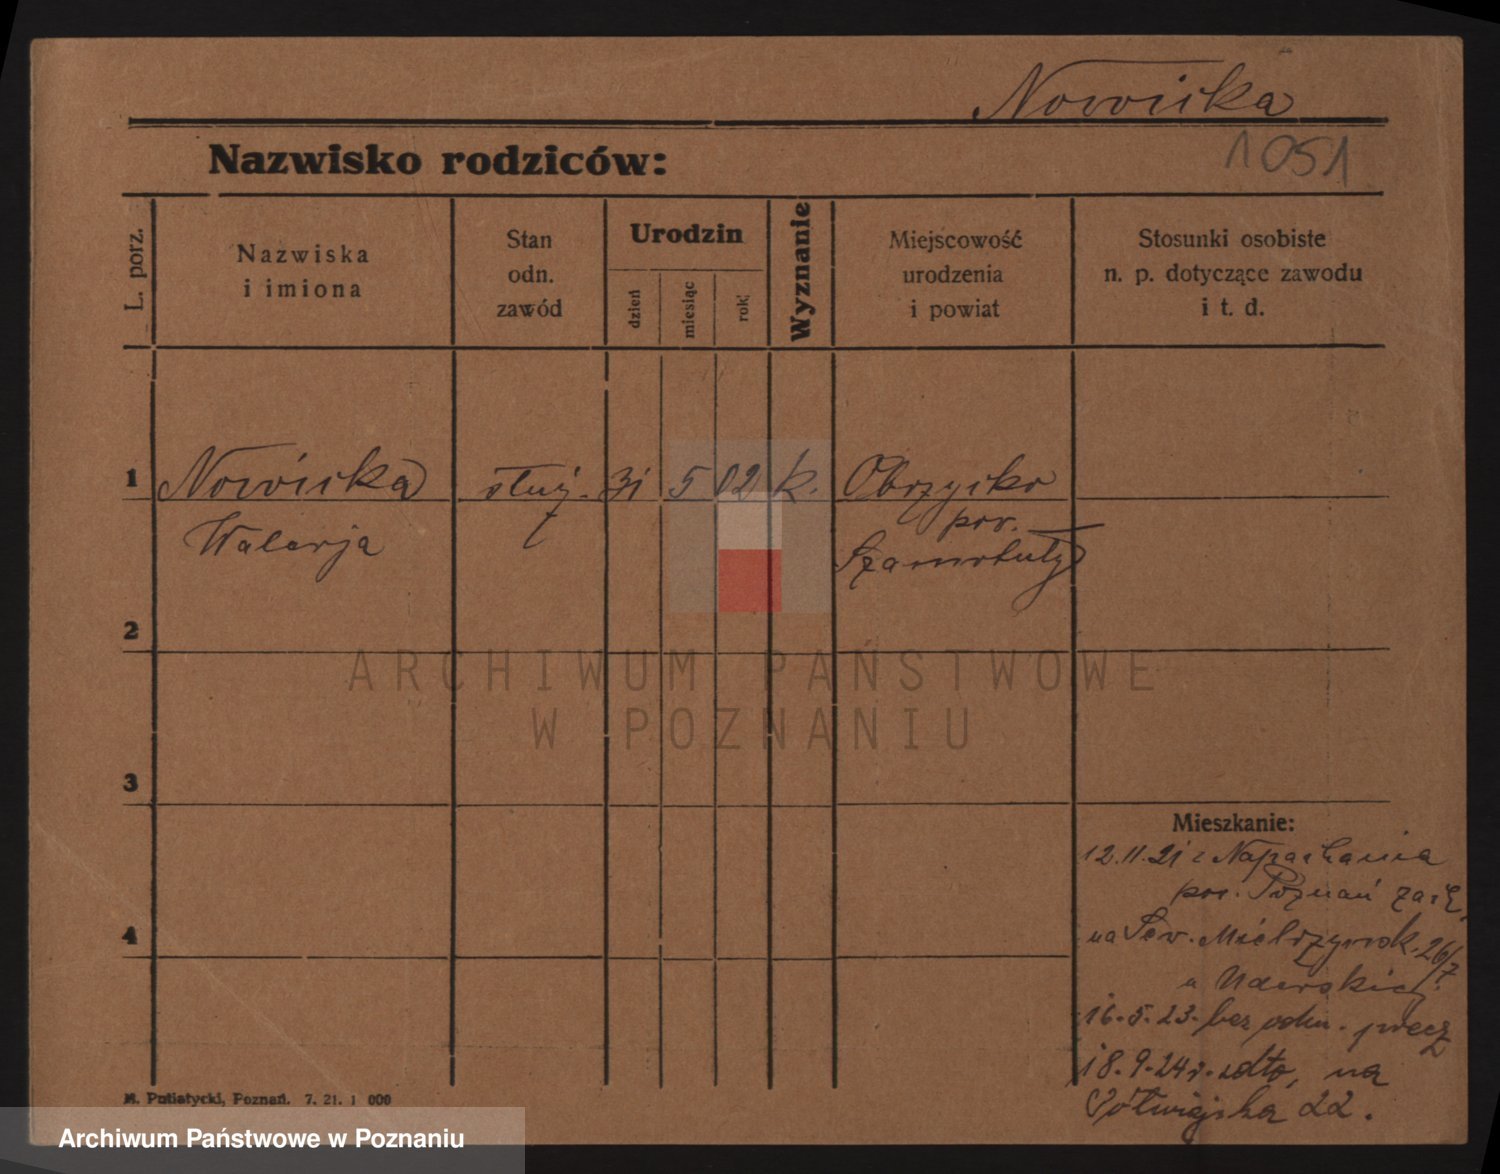 Nowicka
Nazwisko rodziców:
1051
L. porz.
Nazwiska
i imiona
Stan
odn.
zawód
Urodzin
dzień
miesiąc
rok
Wyznanie
Miejscowość
urodzenia
i powiat
Stosunki osobiste
n. p. dotyczące zawodu
i t. d.
1 Nowicka służ. 31 5 02 k. Obrzycko
Walerja pow.
Szamotuły
2
3
4
ARCHIWUM PAŃSTWOWE
W POZNANIU
Mieszkanie:
12.11.21 z Napachania
pow. Poznań
na Sew. Mielżyńsk. 26/7
u
16.5.23. bez odm. precz
18.9.24r. zdto, na
Półwiejska 22.
M. Putiatycki, Poznań. 7. 21. 1 000
Archiwum Państwowe w Poznaniu